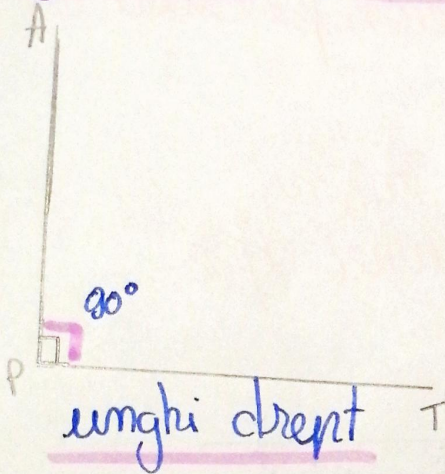 A
90°
P
unghi drept
T